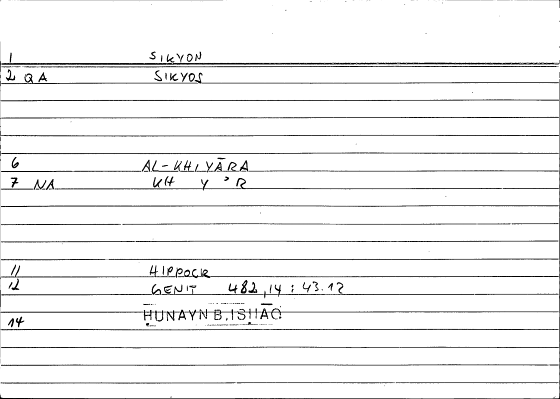 1 SIKYON
2 QA SIKYOS
6 AL-KHIYĀRA
7 NA KH Y ʾ R
11 HIPPOCR
12 GENIT 482,14 : 43.12
14 ḤUNAYN B. ISḤĀQ